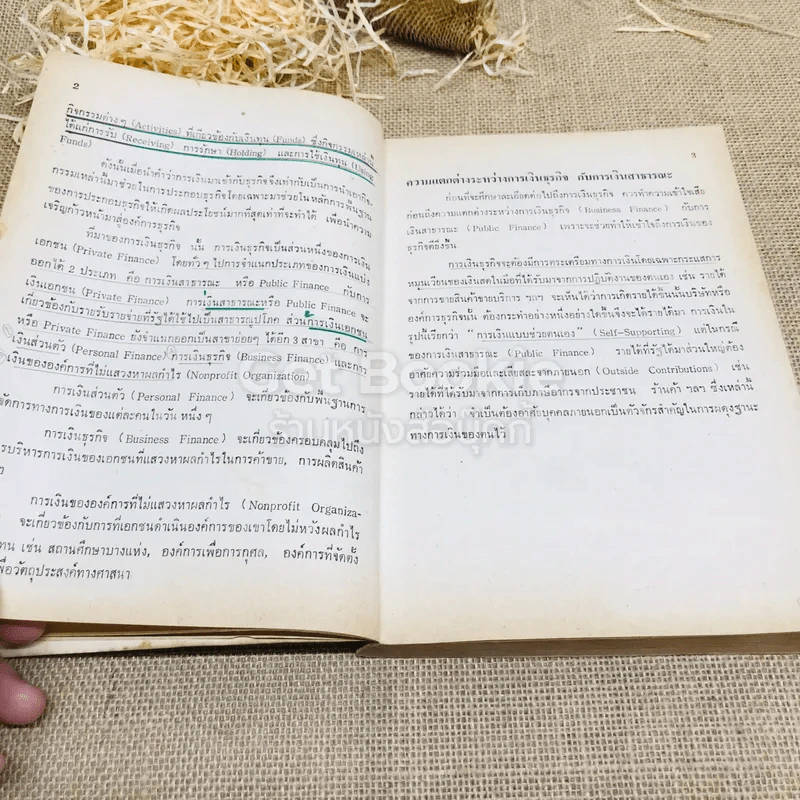 2
กิจกรรมต่างๆ (Activities) ที่เกี่ยวข้องกับเงินทุน (Funds) ซึ่งกิจกรรมเหล่านี้
ได้แก่การรับ (Receiving) การรักษา (Holding) และการใช้เงินทุน (Using
Funds)
ดังนั้นเมื่อนำคำว่าการเงินมาเข้ากับธุรกิจจึงเท่ากับเป็นการนำเอากิจ-
กรรมเหล่านี้มาช่วยในการประกอบธุรกิจโดยเฉพาะมาช่วยในหลักการพื้นฐาน
ของการประกอบธุรกิจให้เกิดผลประโยชน์มากที่สุดเท่าที่จะทำได้ เพื่อนำความ
เจริญก้าวหน้ามาสู่องค์การธุรกิจ
ที่มาของการเงินธุรกิจ นั้น การเงินธุรกิจเป็นส่วนหนึ่งของการเงิน
เอกชน (Private Finance) โดยทั่วๆ ไปการจำแนกประเภทของการเงินแบ่ง
ออกได้ 2 ประเภท คือ การเงินสาธารณะ หรือ Public Finance กับการ
เงินเอกชน (Private Finance) การเงินสาธารณะหรือ Public Finance จะ
เกี่ยวข้องกับรายรับรายจ่ายที่รัฐได้ใช้ไปเป็นสาธารณูปโภค ส่วนการเงินเอกชน
หรือ Private Finance ยังจำแนกออกเป็นสาขาย่อยๆ ได้อีก 3 สาขา คือ การ
เงินส่วนตัว (Personal Finance) การเงินธุรกิจ (Business Finance) และการ
เงินขององค์การที่ไม่แสวงหาผลกำไร (Nonprofit Organization)
การเงินส่วนตัว (Personal Finance) จะเกี่ยวข้องกับพื้นฐานการ
จัดการทางการเงินของแต่ละคนในวัน หนึ่งๆ
การเงินธุรกิจ (Business Finance) จะเกี่ยวข้องครอบคลุมไปถึง
การบริหารการเงินของเอกชนที่แสวงหาผลกำไรในการค้าขาย, การผลิตสินค้า
การเงินขององค์การที่ไม่แสวงหาผลกำไร (Nonprofit Organiza-
จะเกี่ยวข้องกับการที่เอกชนดำเนินองค์การของเขาโดยไม่หวังผลกำไร
แทน เช่น สถานศึกษาบางแห่ง, องค์การเพื่อการกุศล, องค์การที่จัดตั้ง
เพื่อวัตถุประสงค์ทางศาสนา
3
ความแตกต่างระหว่างการเงินธุรกิจ กับการเงินสาธารณะ
ก่อนที่จะศึกษาละเอียดต่อไปถึงการเงินธุรกิจ ควรทำความเข้าใจเสีย
ก่อนถึงความแตกต่างระหว่างการเงินธุรกิจ (Business Finance) กับการ
เงินสาธารณะ (Public Finance) เพราะจะช่วยทำให้เข้าใจถึงการเงินของ
ธุรกิจดียิ่งขึ้น
การเงินธุรกิจจะต้องมีการตระเตรียมทางการเงินโดยเฉพาะกระแสการ
หมุนเวียนของเงินสดในมือที่ได้รับมาจากการปฏิบัติงานของตนเอง เช่น รายได้
จากการขายสินค้าขายบริการ ฯลฯ จะเห็นได้ว่าการเกิดรายได้ขึ้นนั้นบริษัทหรือ
องค์การธุรกิจนั้น ต้องกระทำอย่างหนึ่งอย่างใดขึ้นจึงจะได้รายได้มา การเงินใน
รูปนี้เรียกว่า "การเงินแบบช่วยตนเอง" (Self-Supporting) แต่ในกรณี
ของการเงินสาธารณะ (Public Finance) รายได้ที่รัฐได้มาส่วนใหญ่ต้อง
อาศัยความร่วมมือและเสียสละจากภายนอก (Outside Contributions) เช่น
รายได้ที่ได้มาจากการเก็บภาษีอากรจากประชาชน ร้านค้า ฯลฯ ซึ่งเหล่านี้
กล่าวได้ว่า จำเป็นต้องอาศัยบุคคลภายนอกเป็นตัวจักรสำคัญในการผดุงฐานะ
ทางการเงินของตนไว้
Get Bookie
ร้านหนังสือนุกกี้